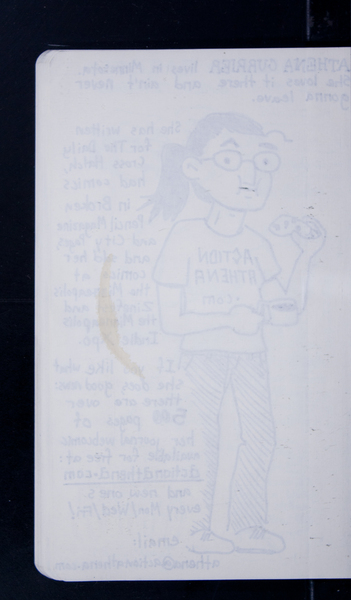 ATHENA CURRIER lives in Minnesota.
She loves it there and ain't never
gonna leave.
She has written
for The Onion,
had comics
in Broken
Pencil Magazine
and City Pages,
and sold her
comics at
the Minneapolis
Zinefest and
the Minneapolis
Indie Expo.
If you like what
she does, good news:
there are over
pages of
her journal webcomic
available for free at:
actionathena.com
and new ones
every Mon/Wed/Fri!
email:
athena@actionathena.com
ACTION
ATHENA
.com